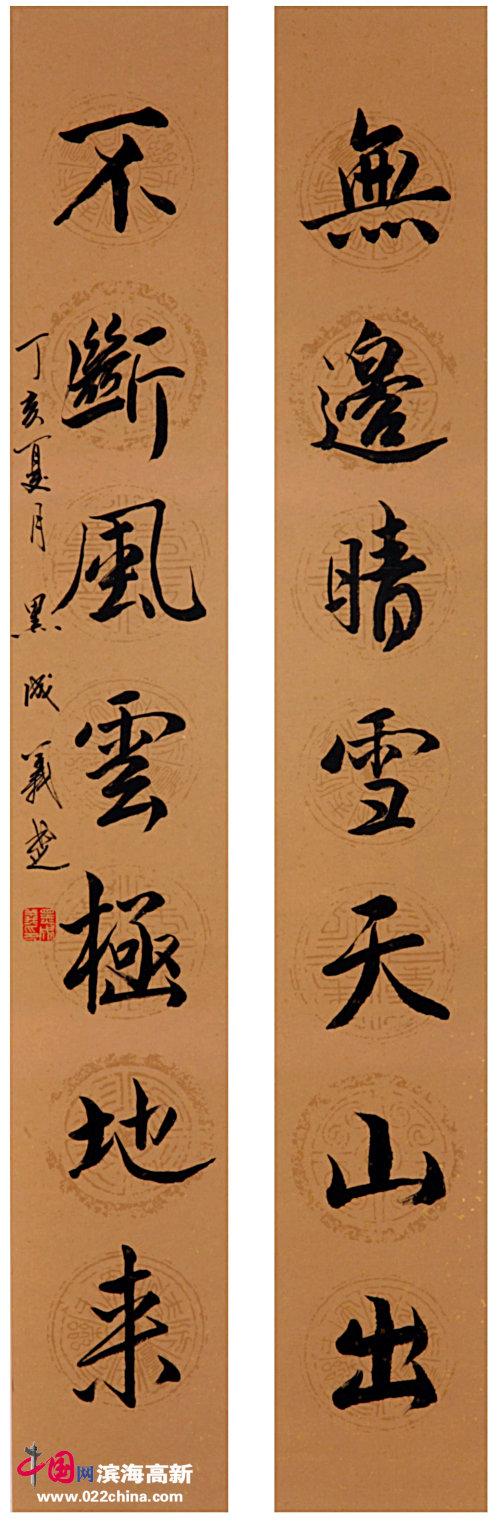 無邊晴雪天山出
不斷風雲極地来
丁亥夏月 黑成義書
中国网 滨海高新
www.022china.com